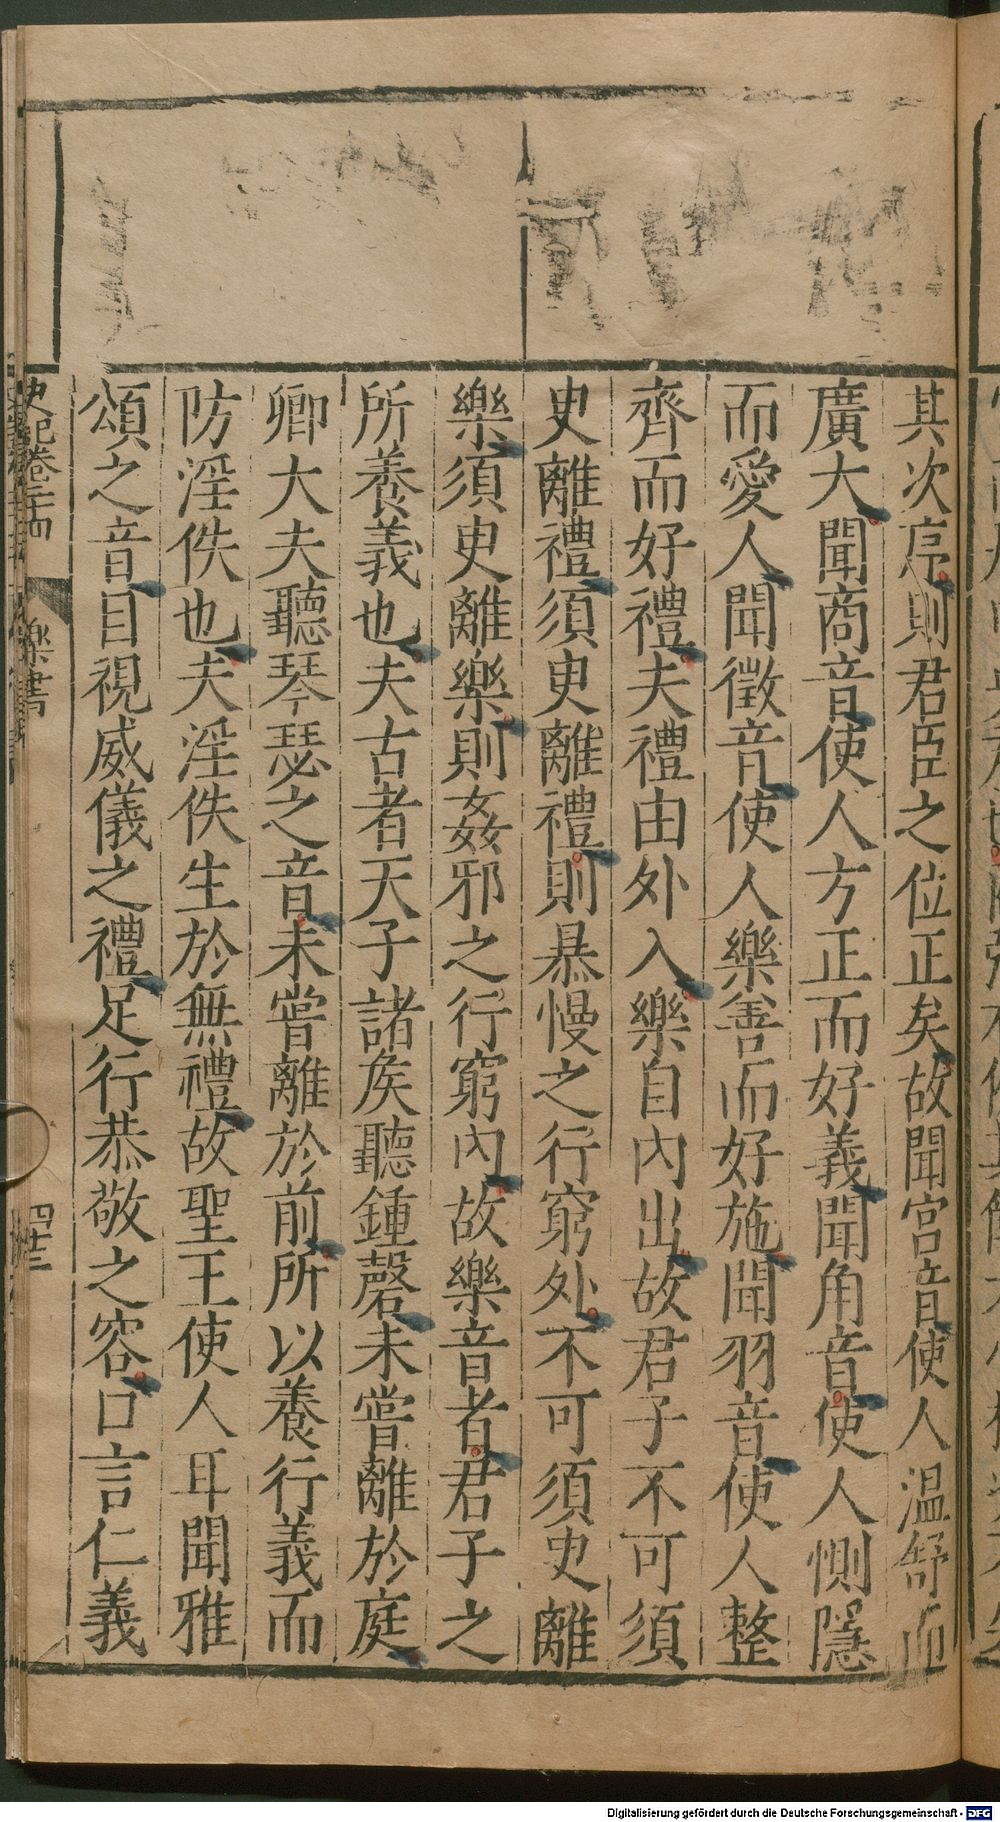 其次序則君臣之位正矣故聞宮音使人温舒而
廣大聞商音使人方正而好義聞角音使人惻隱
而愛人聞徵音使人樂善而好施聞羽音使人整
齊而好禮夫禮由外入樂自內出故君子不可須
臾離禮須臾離禮則暴慢之行窮外不可須臾離
樂須臾離樂則姦邪之行窮內故樂音者君子之
所養義也夫古者天子諸矦聽鍾磬未甞離於庭
卿大夫聽琴瑟之音未甞離於前所以養行義而
防淫佚也夫淫佚生於無禮故聖王使人耳聞雅
頌之音目視威儀之禮足行恭敬之容口言仁義
史記卷二十四 樂書
Digitalisierung gefördert durch die Deutsche Forschungsgemeinschaft - DFG